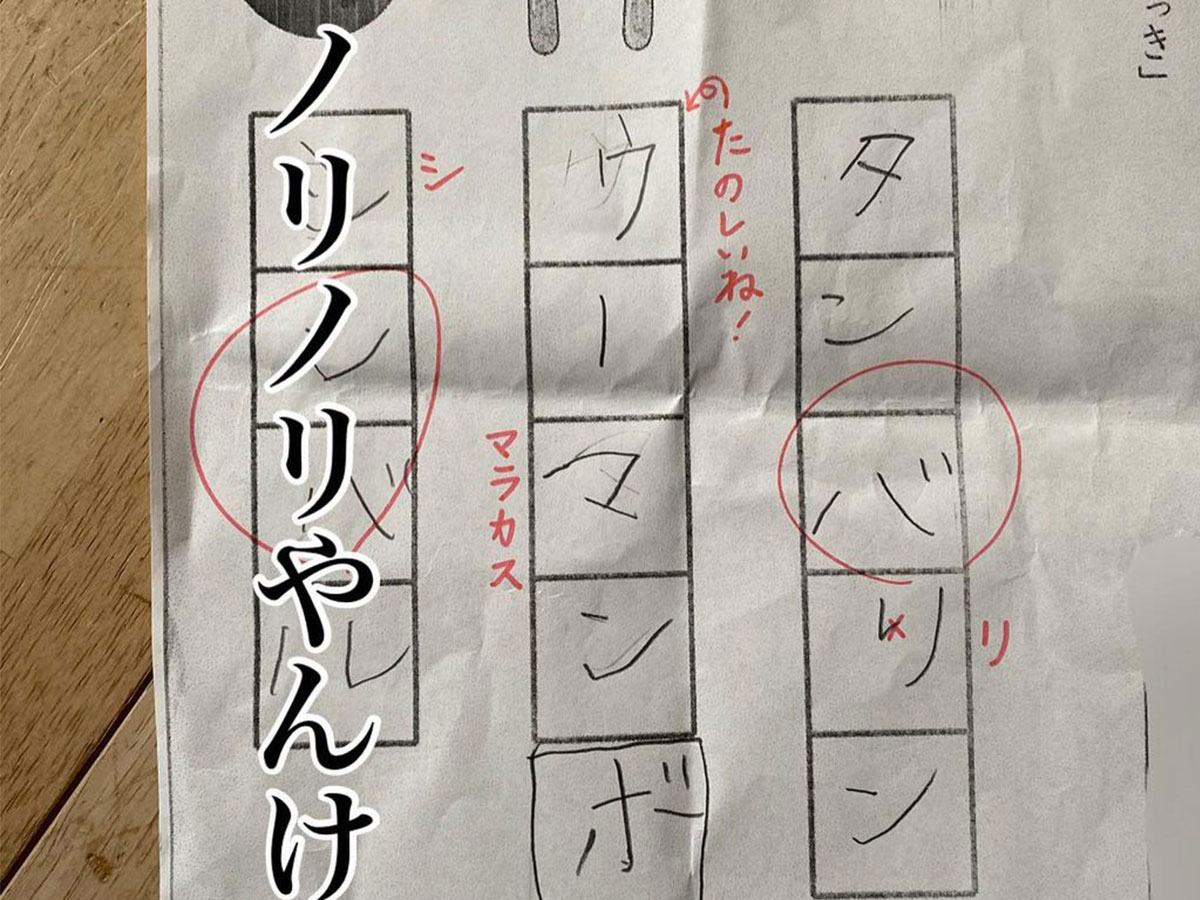 っき」
タンバリン
リ
のたのしいね！
ウーマンボ
マラカス
シ
シンバル
ノリノリやんけ